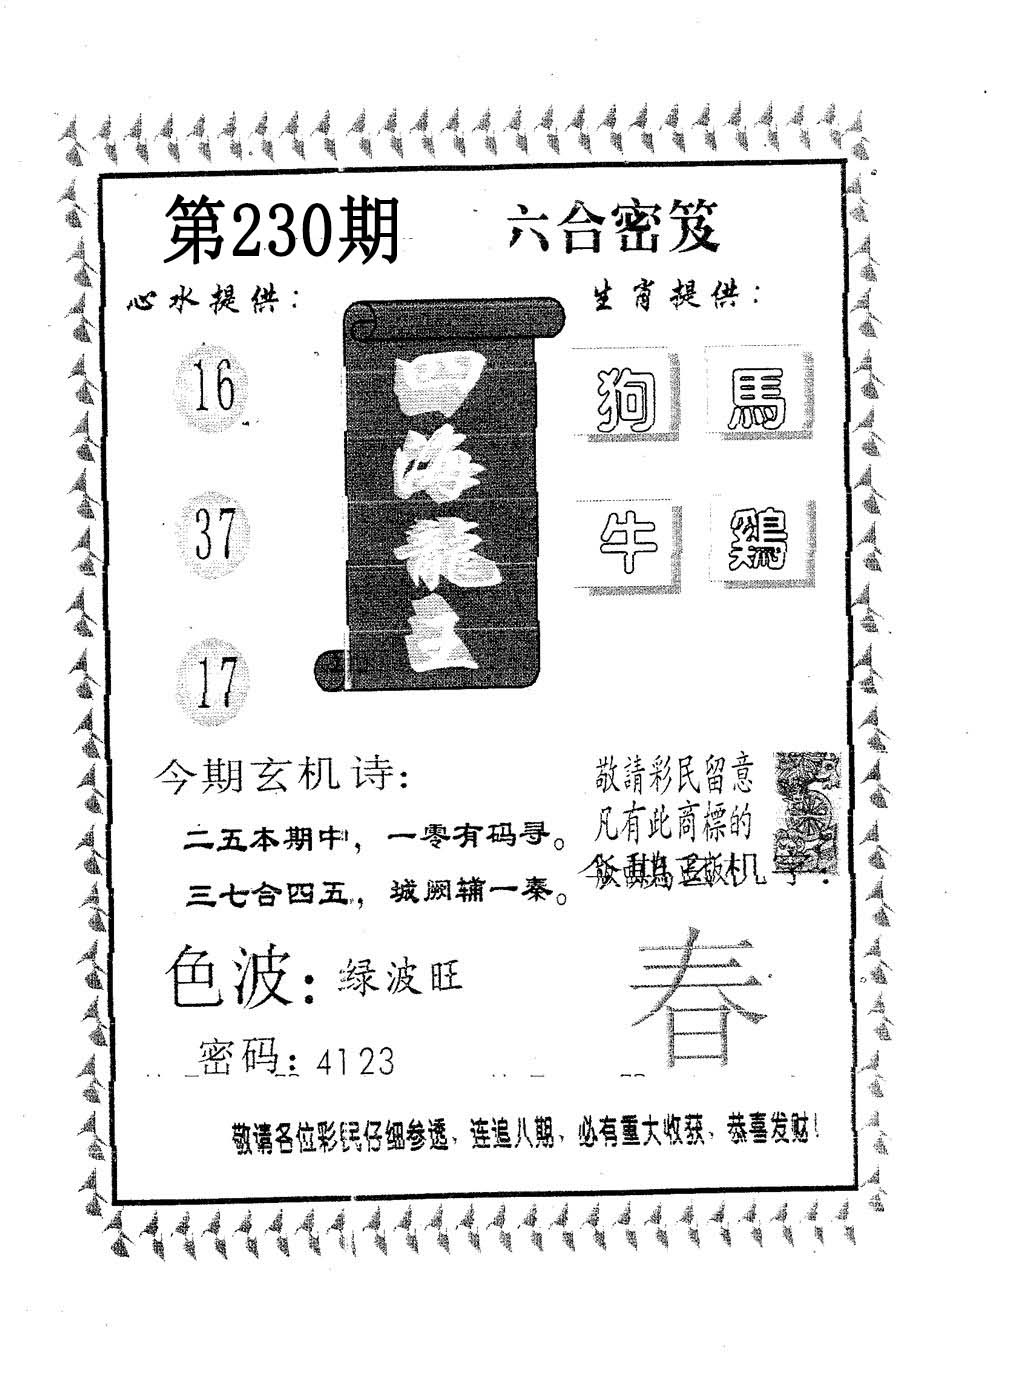 第230期
六合密笈
心水提供：
生肖提供：
16
37
17
四海龍王
狗 馬
牛 鷄
今期玄机诗：
二五本期中，一零有码寻。
三七合四五，城阙辅一秦。
敬請彩民留意
凡有此商標的
色波：绿波旺
密码：4123
春
敬请各位彩民仔细参透、连追八期、必有重大收获、恭喜发财！